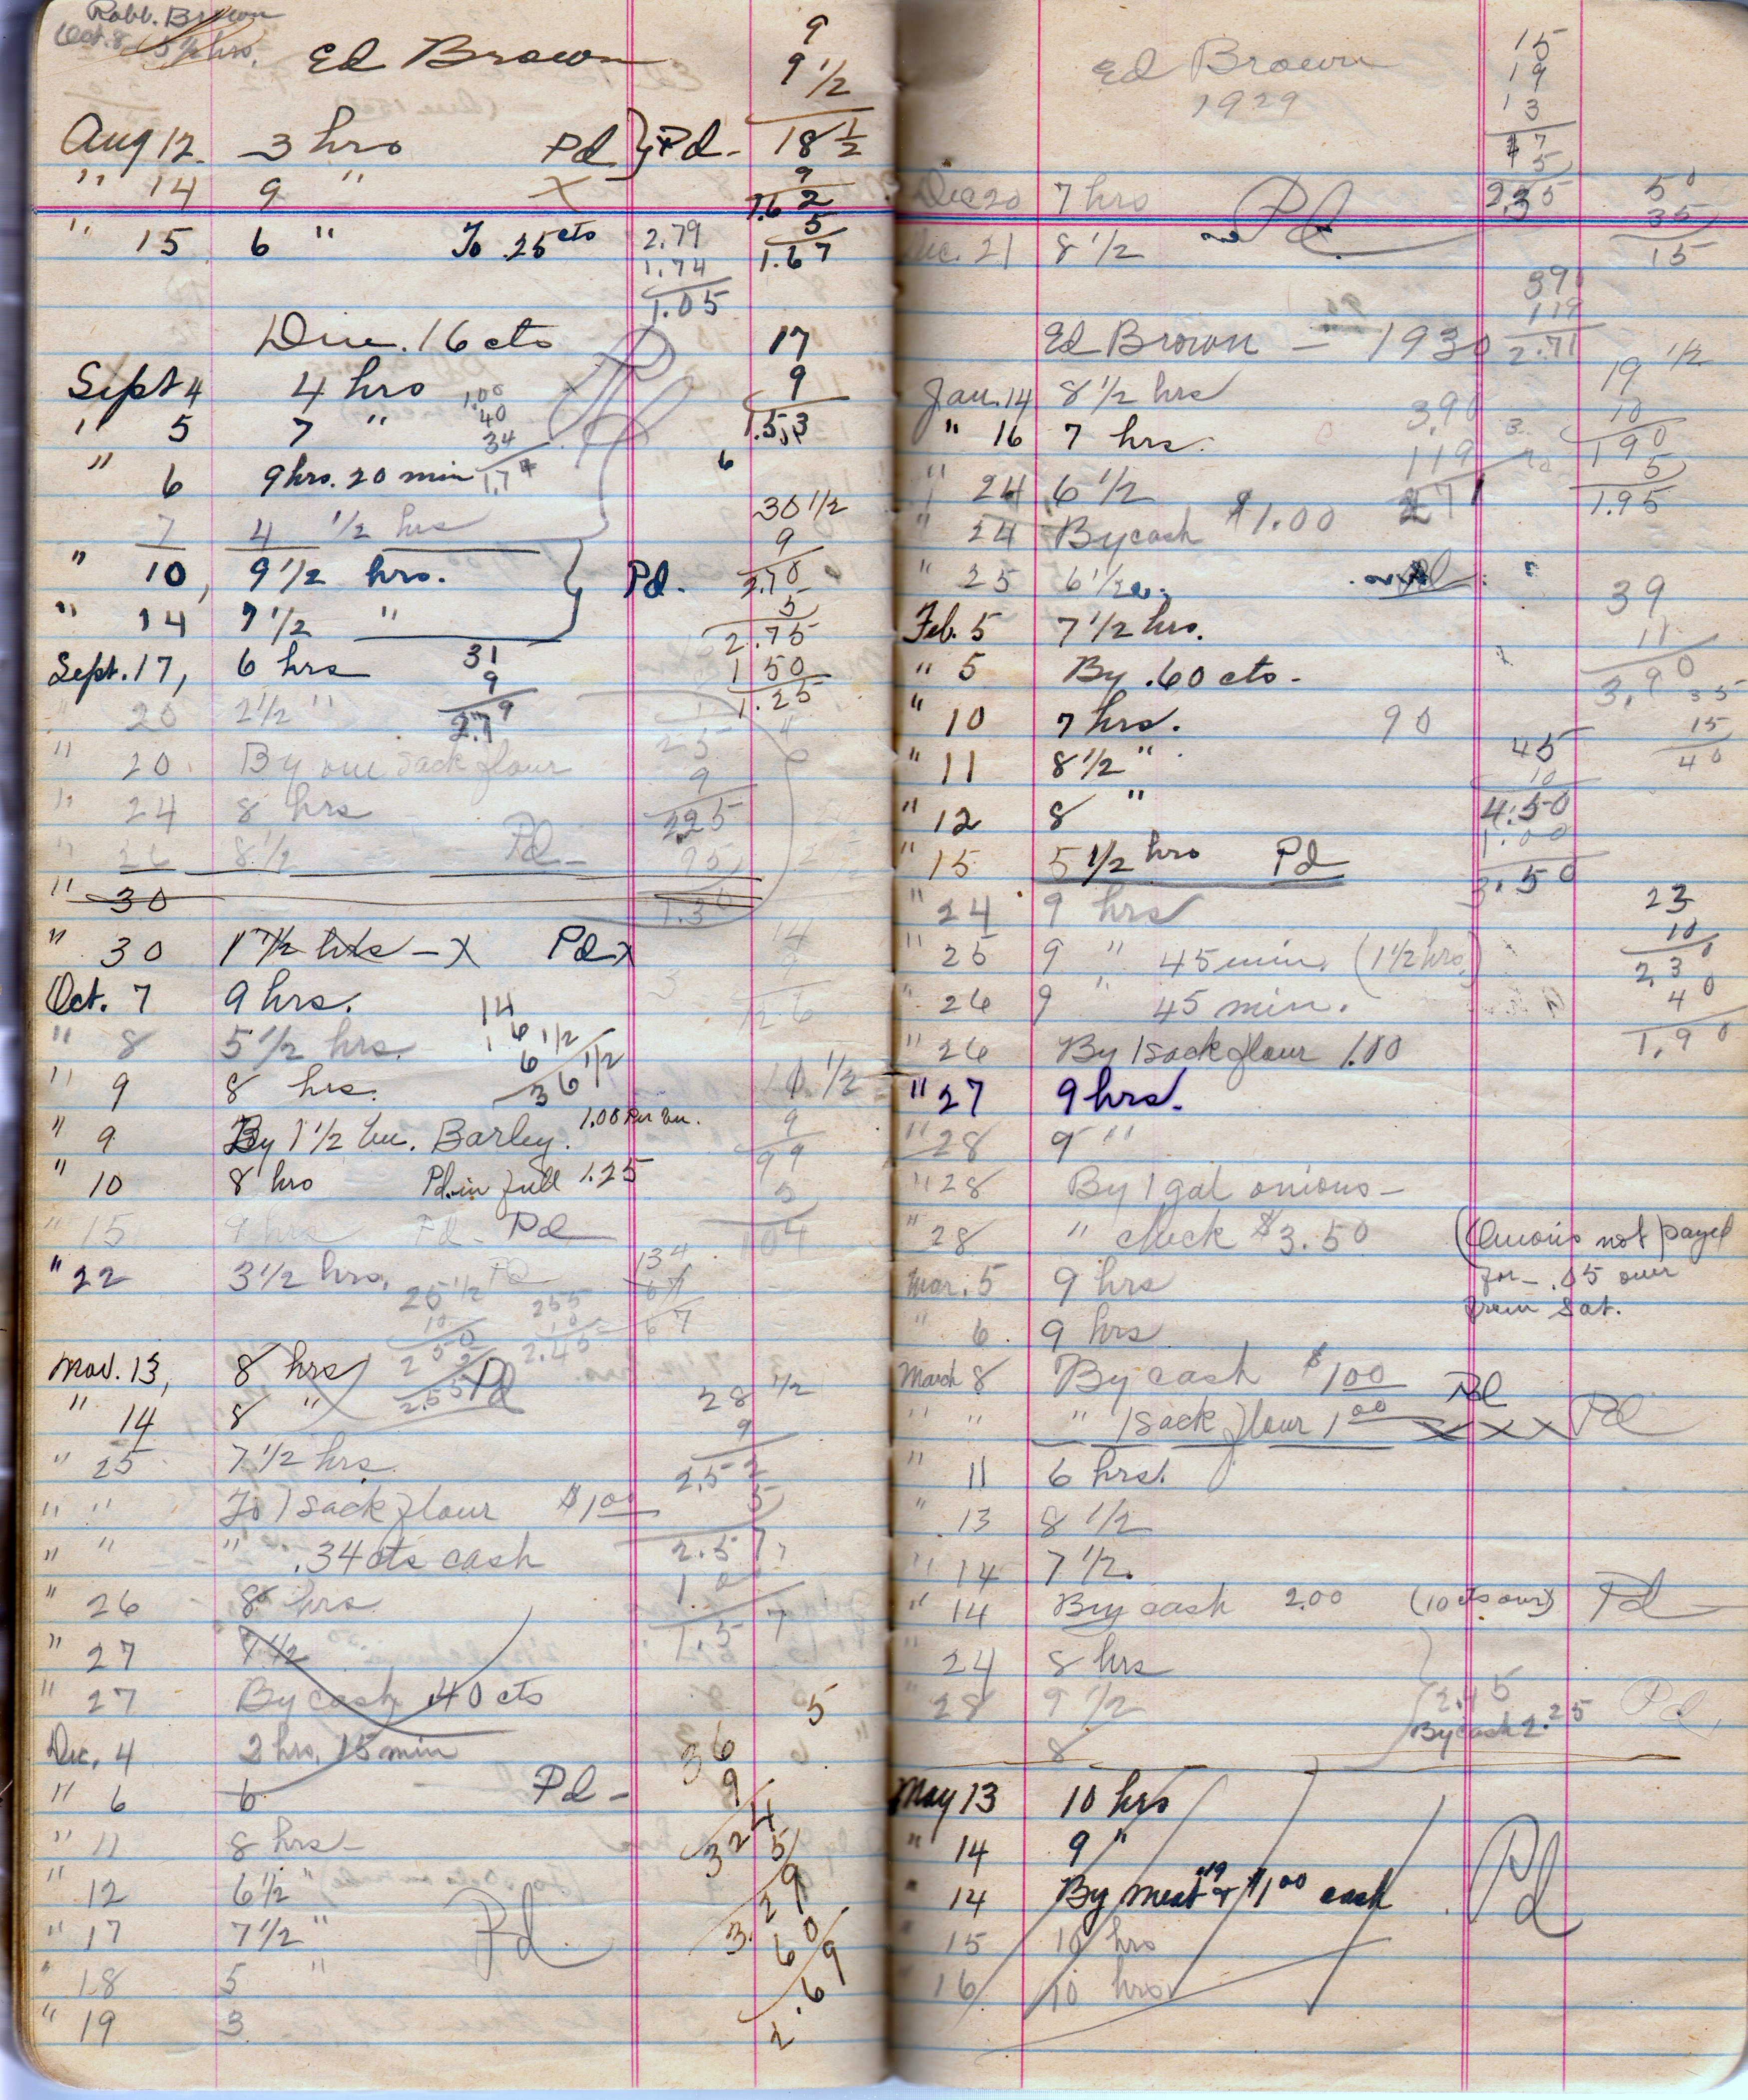 Robb. Brown
Oct. 8 5 1/2 hrs.
Ed Brown
9
9 1/2
18 1/2
9
1.62
5
1.67
Aug 12. 3 hrs Pd } Pd.
" 14 9 " X
" 15 6 " To .25 cts
2.79
1.74
1.05
Due .16 cts
17
9
1.53
Sept 4 4 hrs
1.00
40
34
1.74
" 5 7 "
" 6 9 hrs. 20 min
Pd
6
7 4 1/2 hrs
30 1/2
9
2.70
5
2.75
1 50
1.25
" 10, 9 1/2 hrs. } Pd.
" 14 7 1/2 "
Sept. 17, 6 hrs
31
9
2.79
" 20 2 1/2 "
" 20. By one sack flour
25
9
225
95
1.30
" 24 8 hrs
" 26 8 1/2 Pd -
" 30
" 30 1 7 1/2 hrs - X Pd X
14
9
126
Oct. 7 9 hrs.
14
16 1/2
6
36 1/2
" 8 5 1/2 hrs.
" 9 8 hrs.
" 9 By 1 1/2 bu. Barley. 1.00 Per bu.
11 1/2
9
99
5
104
" 10 8 hrs Pd. in full 1.25
" 15 9 hrs Pd - Pd
" 22 3 1/2 hrs. Pd
134
67
67
25 1/2
10
250
5
2.55
255
10
2.45
Nov. 13, 8 hrs Pd
" 14 8 "
28 1/2
9
252
5
2.57
1.0
1.57
" 25 7 1/2 hrs.
" " To 1 sack flour $1 00
" " " .34 cts cash
" 26 8 hrs
" 27 7 1/2
" 27 By cash .40 cts
5
36
9
324
5
329
60
2.69
Dec. 4 2 hrs, 15 min
" 6 6 Pd -
" 11 8 hrs -
" 12 6 1/2 "
" 17 7 1/2 " Pd
" 18 5 "
" 19 3
Ed Brown
1929
15
19
13
47
5
2.35
50
35
15
Dec 20 7 hrs Pd
Dec. 21 8 1/2
390
119
2.71
Ed Brown - 1930
19 1/2
10
190
5
1.95
Jan. 14 8 1/2 hrs
3.90
119
271
" 16 7 hrs.
" 24 6 1/2
" 24 By cash $1.00
" 25 6 1/2
39
11
3.90
Feb. 5 7 1/2 hrs.
" 5 By .60 cts -
35
15
40
" 10 7 hrs. 90
45
10
4.50
1.00
3.50
" 11 8 1/2 "
" 12 8 "
" 15 5 1/2 hrs Pd
23
10
2.30
40
1.90
" 24 9 hrs
" 25 9 " 45 min. (1 1/2 hrs.)
" 26 9 " 45 min.
" 26 By 1 sack flour 1.00
" 27 9 hrs.
" 28 9 "
" 28 By 1 gal onions -
" 28 " check $3.50
(Onions not payed
for - .05 over
from Sat.
Mar. 5 9 hrs
" 6. 9 hrs
March 8 By cash $1 00 Pd
" " " 1 sack flour 1 00 X X X Pd
" 11 6 hrs.
" 13 8 1/2
" 14 7 1/2.
" 14 By cash 2.00 (10 cts over) Pd
" 24 8 hrs
" 28 9 1/2
8
2.45
By cash 2.25
Pd.
May 13 10 hrs
" 14 9 "
" 14 By meat .19 & $1 00 cash Pd
" 15 10 hrs
" 16 10 hrs